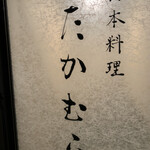 本料理
たかむら